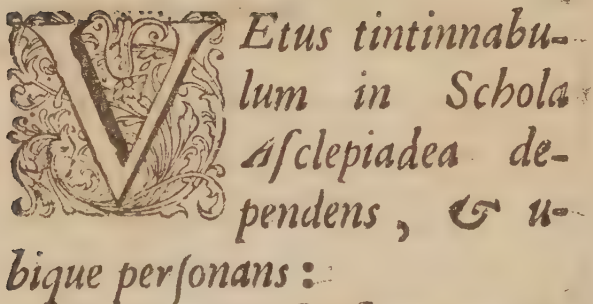 VEtus tintinnabu-
lum in Schola
Aſclepiadea de-
pendens, & u-
bique perſonans: